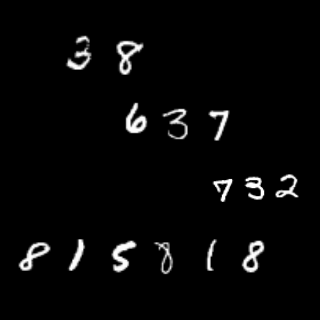 38
637
732
815818